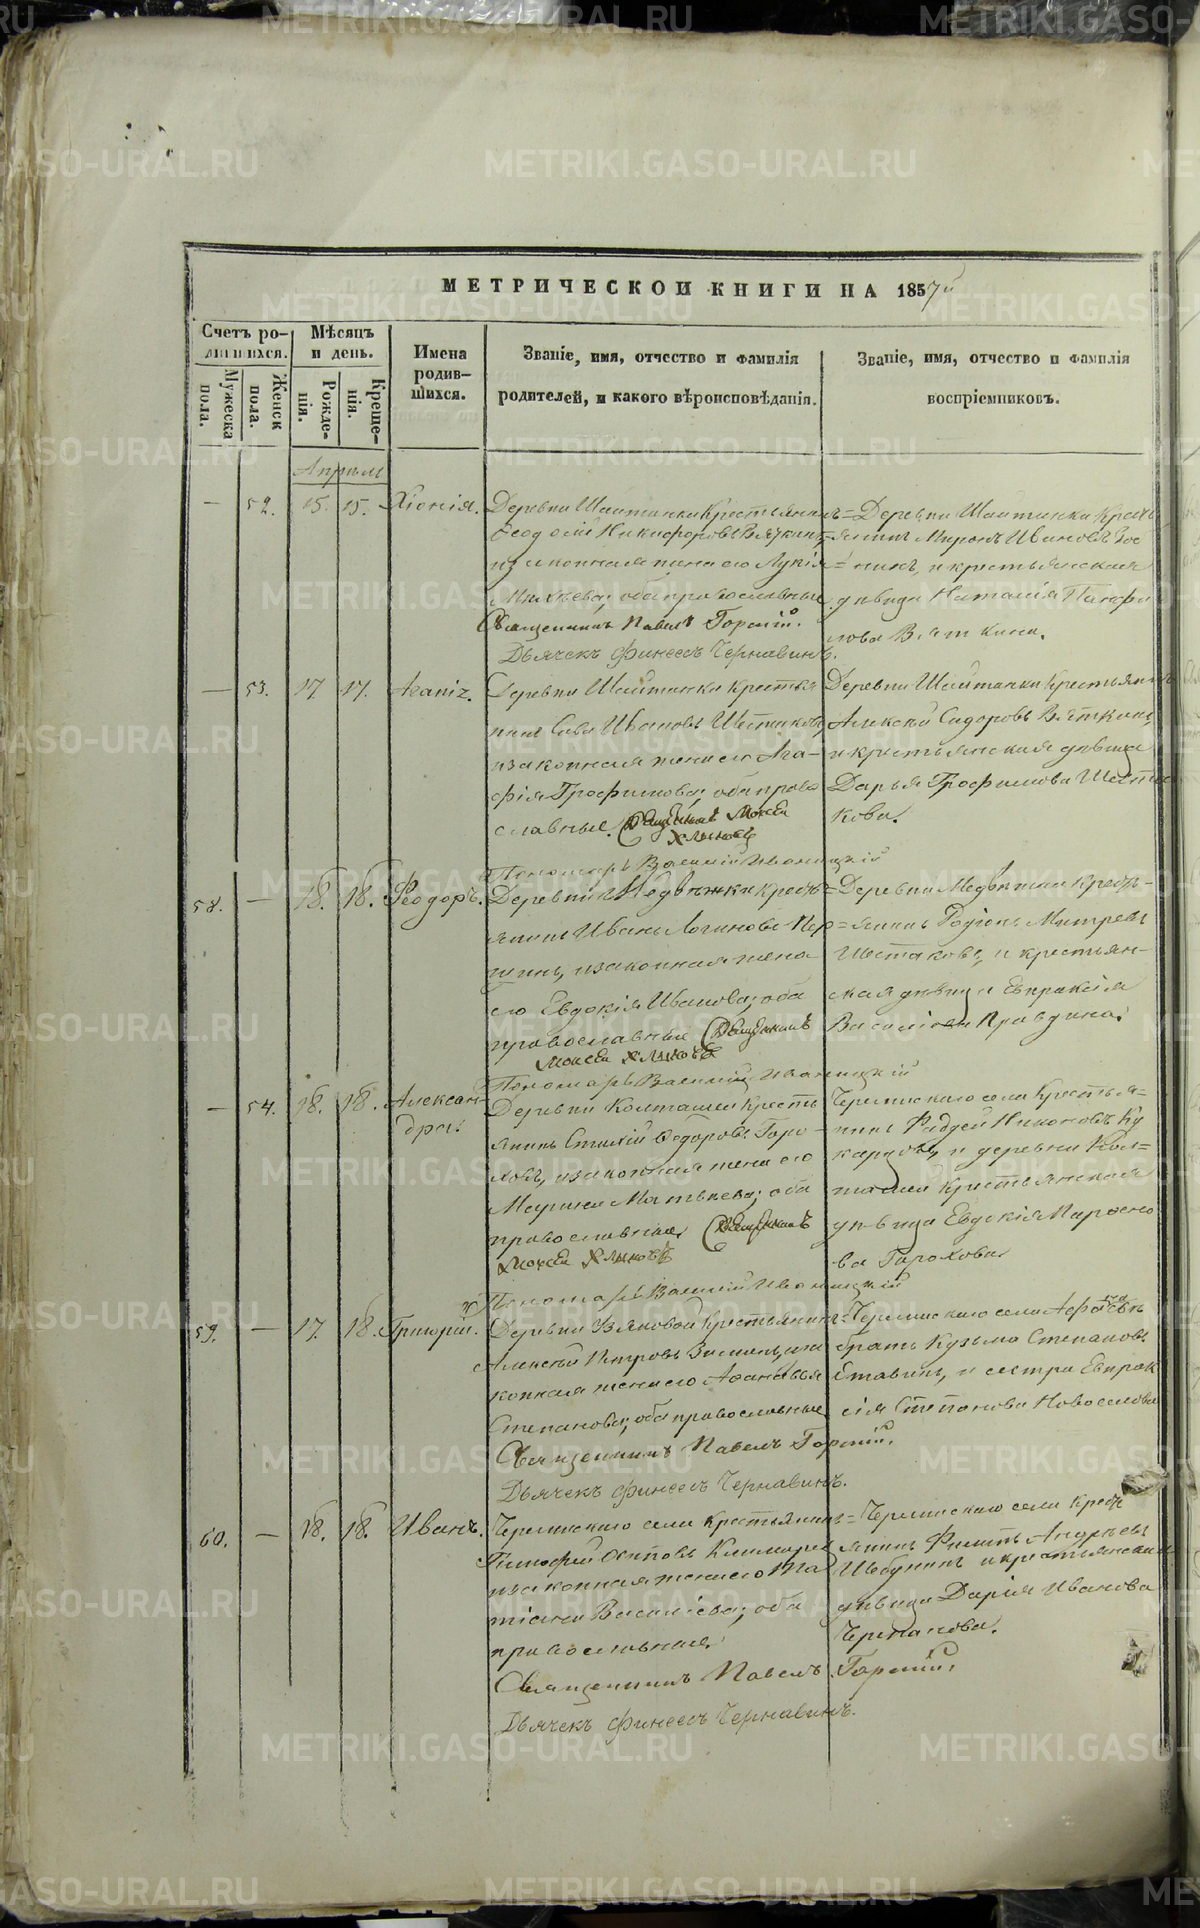 МЕТРИЧЕСКОЙ КНИГИ НА 1857й
Счетъ родившихся.
Мужеска пола.
Женск пола.
Мѣсяцъ и день.
Рожденія.
Крещенія.
Имена родившихся.
Званіе, имя, отчество и фамилія
родителей, и какого вѣроисповѣданія.
Званіе, имя, отчество и фамилія
воспріемниковъ.
Апрѣль
— 52. 15. 15. Хіонія.
Деревни Шайтанки Крестьянинъ
Феодосій Никифоровъ Вяткинъ,
и законная жена его Лукія
Михѣева; оба православные
Священникъ Павелъ Горскій.
Дьячекъ Финеесъ Чернавинъ.
Деревни Шайтанки Кресть
янинъ Миронъ Ивановъ
и крестьянская
дѣвица Наталія Панфи
лова Вяткина.
— 53. 17 17. Агапіа.
Деревни Шайтанки крестья
нинъ Сава Ивановъ Шестаковъ,
и законная жена его Ага-
фія Трофимова; оба право
славные. Священникъ Моисей
Хлыновъ
Пономарь Василій Иваницкій
Деревни Шайтанки крестьянинъ
Алексѣй Сидоровъ Вяткинъ,
и крестьянская дѣвица
Дарья Трофимова Шеста
кова.
58. — 18. 18. Феодоръ.
Деревни Медвѣжки кресть=
янинъ Иванъ Логиновъ Пер
шинъ, и законная жена
его Евдокія Иванова; оба
православные Священникъ
Моисей Хлыновъ
Пономарь Василій Иваницкій
Деревни Медвѣжки кресть-
=янинъ Родіонъ Митревъ
Шестаковъ, и крестьян-
ская дѣвица Евпраксія
Василіева Правдина.
— 54. 18. 18. Алексан-
дра.
Деревни Колташей Кресть
янинъ Федоровъ Горо-
ховъ, и законная жена его
Марина Матвѣева; оба
православные Священникъ
Моисей Хлыновъ
Пономарь Василій Иваницкій
Черемисскаго села Крестья=
нинъ Фадей Никоновъ Ку
карцовъ, и деревни Кол=
ташей Крестьянская
дѣвица Евдокія
ва Горохова
59. — 17. 18. Григорій.
Деревни Узяновой Крестьянинъ
Алексѣй Петровъ и за
конная жена его Афанасья
Степанова; оба православные
Священникъ Павелъ Горскій.
Дьячекъ Финеесъ Чернавинъ.
Черемисскаго села
братъ Кузьма Степановъ
и сестра Евпрак
сія Степанова Новоселова
60. — 18. 18. Иванъ.
Черемисскаго села крестьянинъ
Тимофей Осиповъ
и законная жена его Та
тіана Василіева; оба
православные.
Священникъ Павелъ Горскій.
Дьячекъ Финеесъ Чернавинъ.
Черемисскаго села Кресть
янинъ Филипъ Андреевъ
и крестьянская
дѣвица Дарія Иванова
Черепанова.